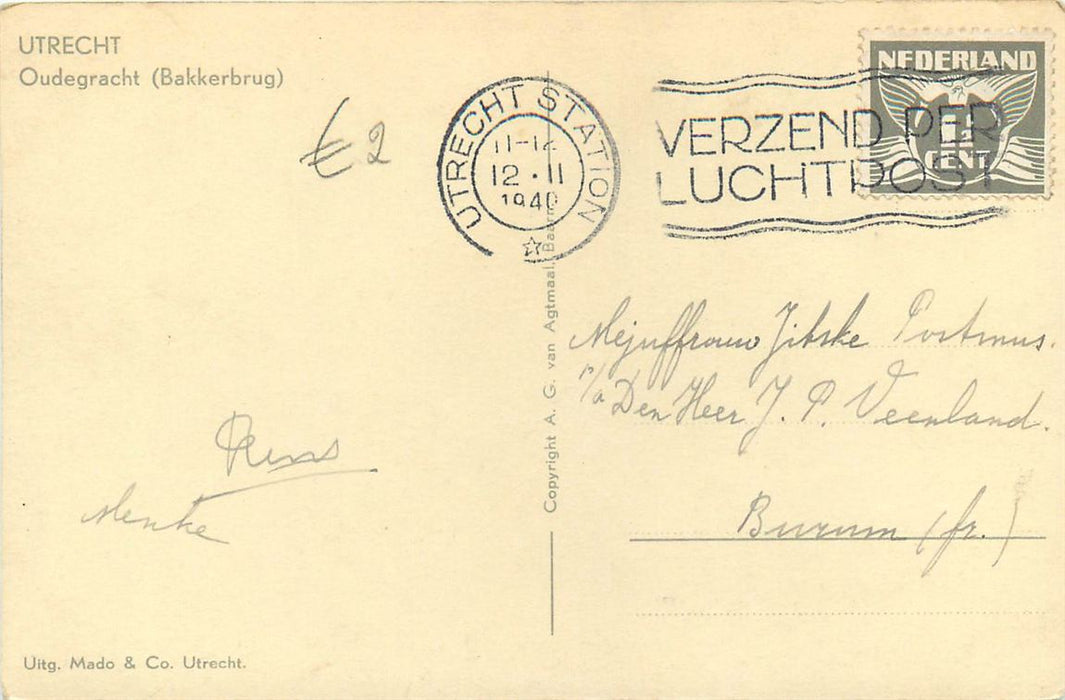 UTRECHT
Oudegracht (Bakkerbrug)
€ 2
UTRECHT STATION
11-12
12·II
1940
VERZEND PER
LUCHTPOST
NEDERLAND
1½
CENT
Mejuffrouw Jitske Postmus.
p/a Den Heer J. P. Veenland.
Burum (fr.)
Menke
Copyright A. G. van Agtmaal, Baarn
Uitg. Mado & Co. Utrecht.